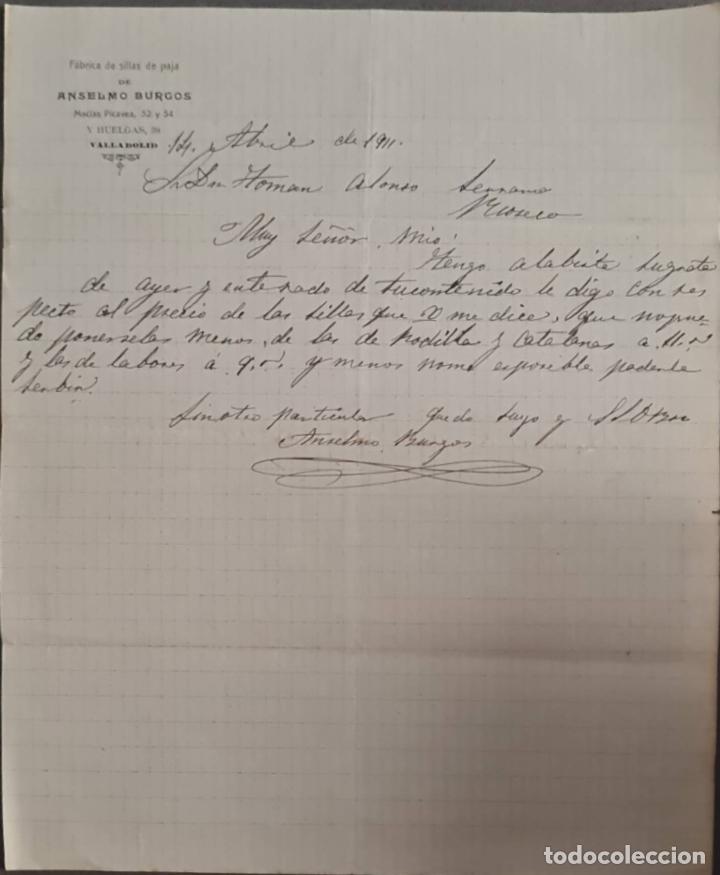 Fábrica de sillas de paja
DE
ANSELMO BURGOS
Macías Picavea, 52 y 54
Y HUELGAS, 20
VALLADOLID
14 Abril de 1911.
Sr Dn Roman Alonso
Rioseco
Muy Señor mio:
Tengo a la bista su grata
de ayer y enterado de su contenido le digo con res
pecto al precio de las sillas que V me dice, que no pue
do ponerselas menos, de las de Rodilla y Catalanas a 11. r
y las de labores á 9. r. y menos no me es posible poderle
serbir.
Sin otro particular quedo suyo y
Anselmo Burgos
todocoleccion